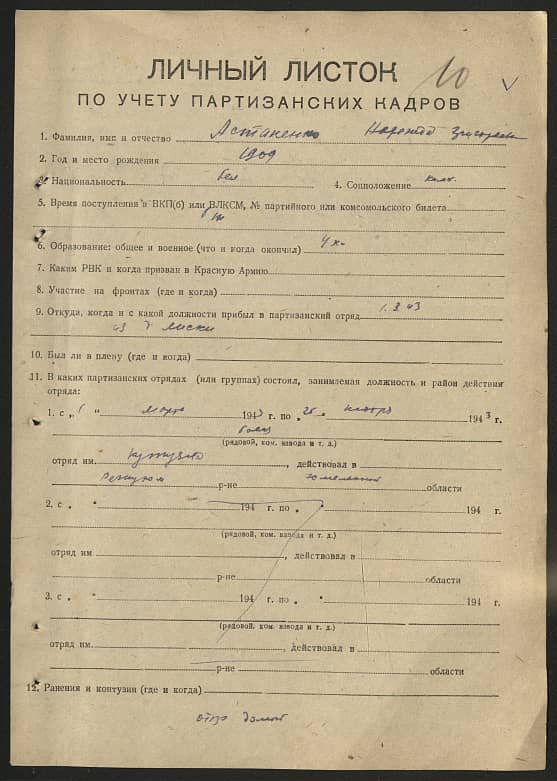 10
ЛИЧНЫЙ ЛИСТОК
ПО УЧЕТУ ПАРТИЗАНСКИХ КАДРОВ
1. Фамилия, имя и отчество Астаненко
2. Год и место рождения 1909
3. Национальность бел 4. Соцположение колх.
5. Время поступления в ВКП(б) или ВЛКСМ, № партийного или комсомольского билета
6. Образование: общее и военное (что и когда окончил) 4 кл
7. Каким РВК и когда призван в Красную Армию
8. Участие на фронтах (где и когда)
9. Откуда, когда и с какой должности прибыл в партизанский отряд 1.3.43
из д Лиски
10. Был ли в плену (где и когда)
11. В каких партизанских отрядах (или группах) состоял, занимаемая должность и район действия
отряда:
1. с „1 “ марта 1943 г. по „26 “ ноября 1943 г.
боец
(рядовой, ком. взвода и т. д.)
отряд им. Кутузова, действовал в
р-не Гомельской области
2. с „ “ 194 г. по „ “ 194 г.
(рядовой, ком. взвода и т. д.)
отряд им , действовал в
р-не области
3. с „ “ 194 г. по „ “ 194 г.
(рядовой, ком. взвода и т. д.)
отряд им. , действовал в
р-не области
12. Ранения и контузии (где и когда)
домой